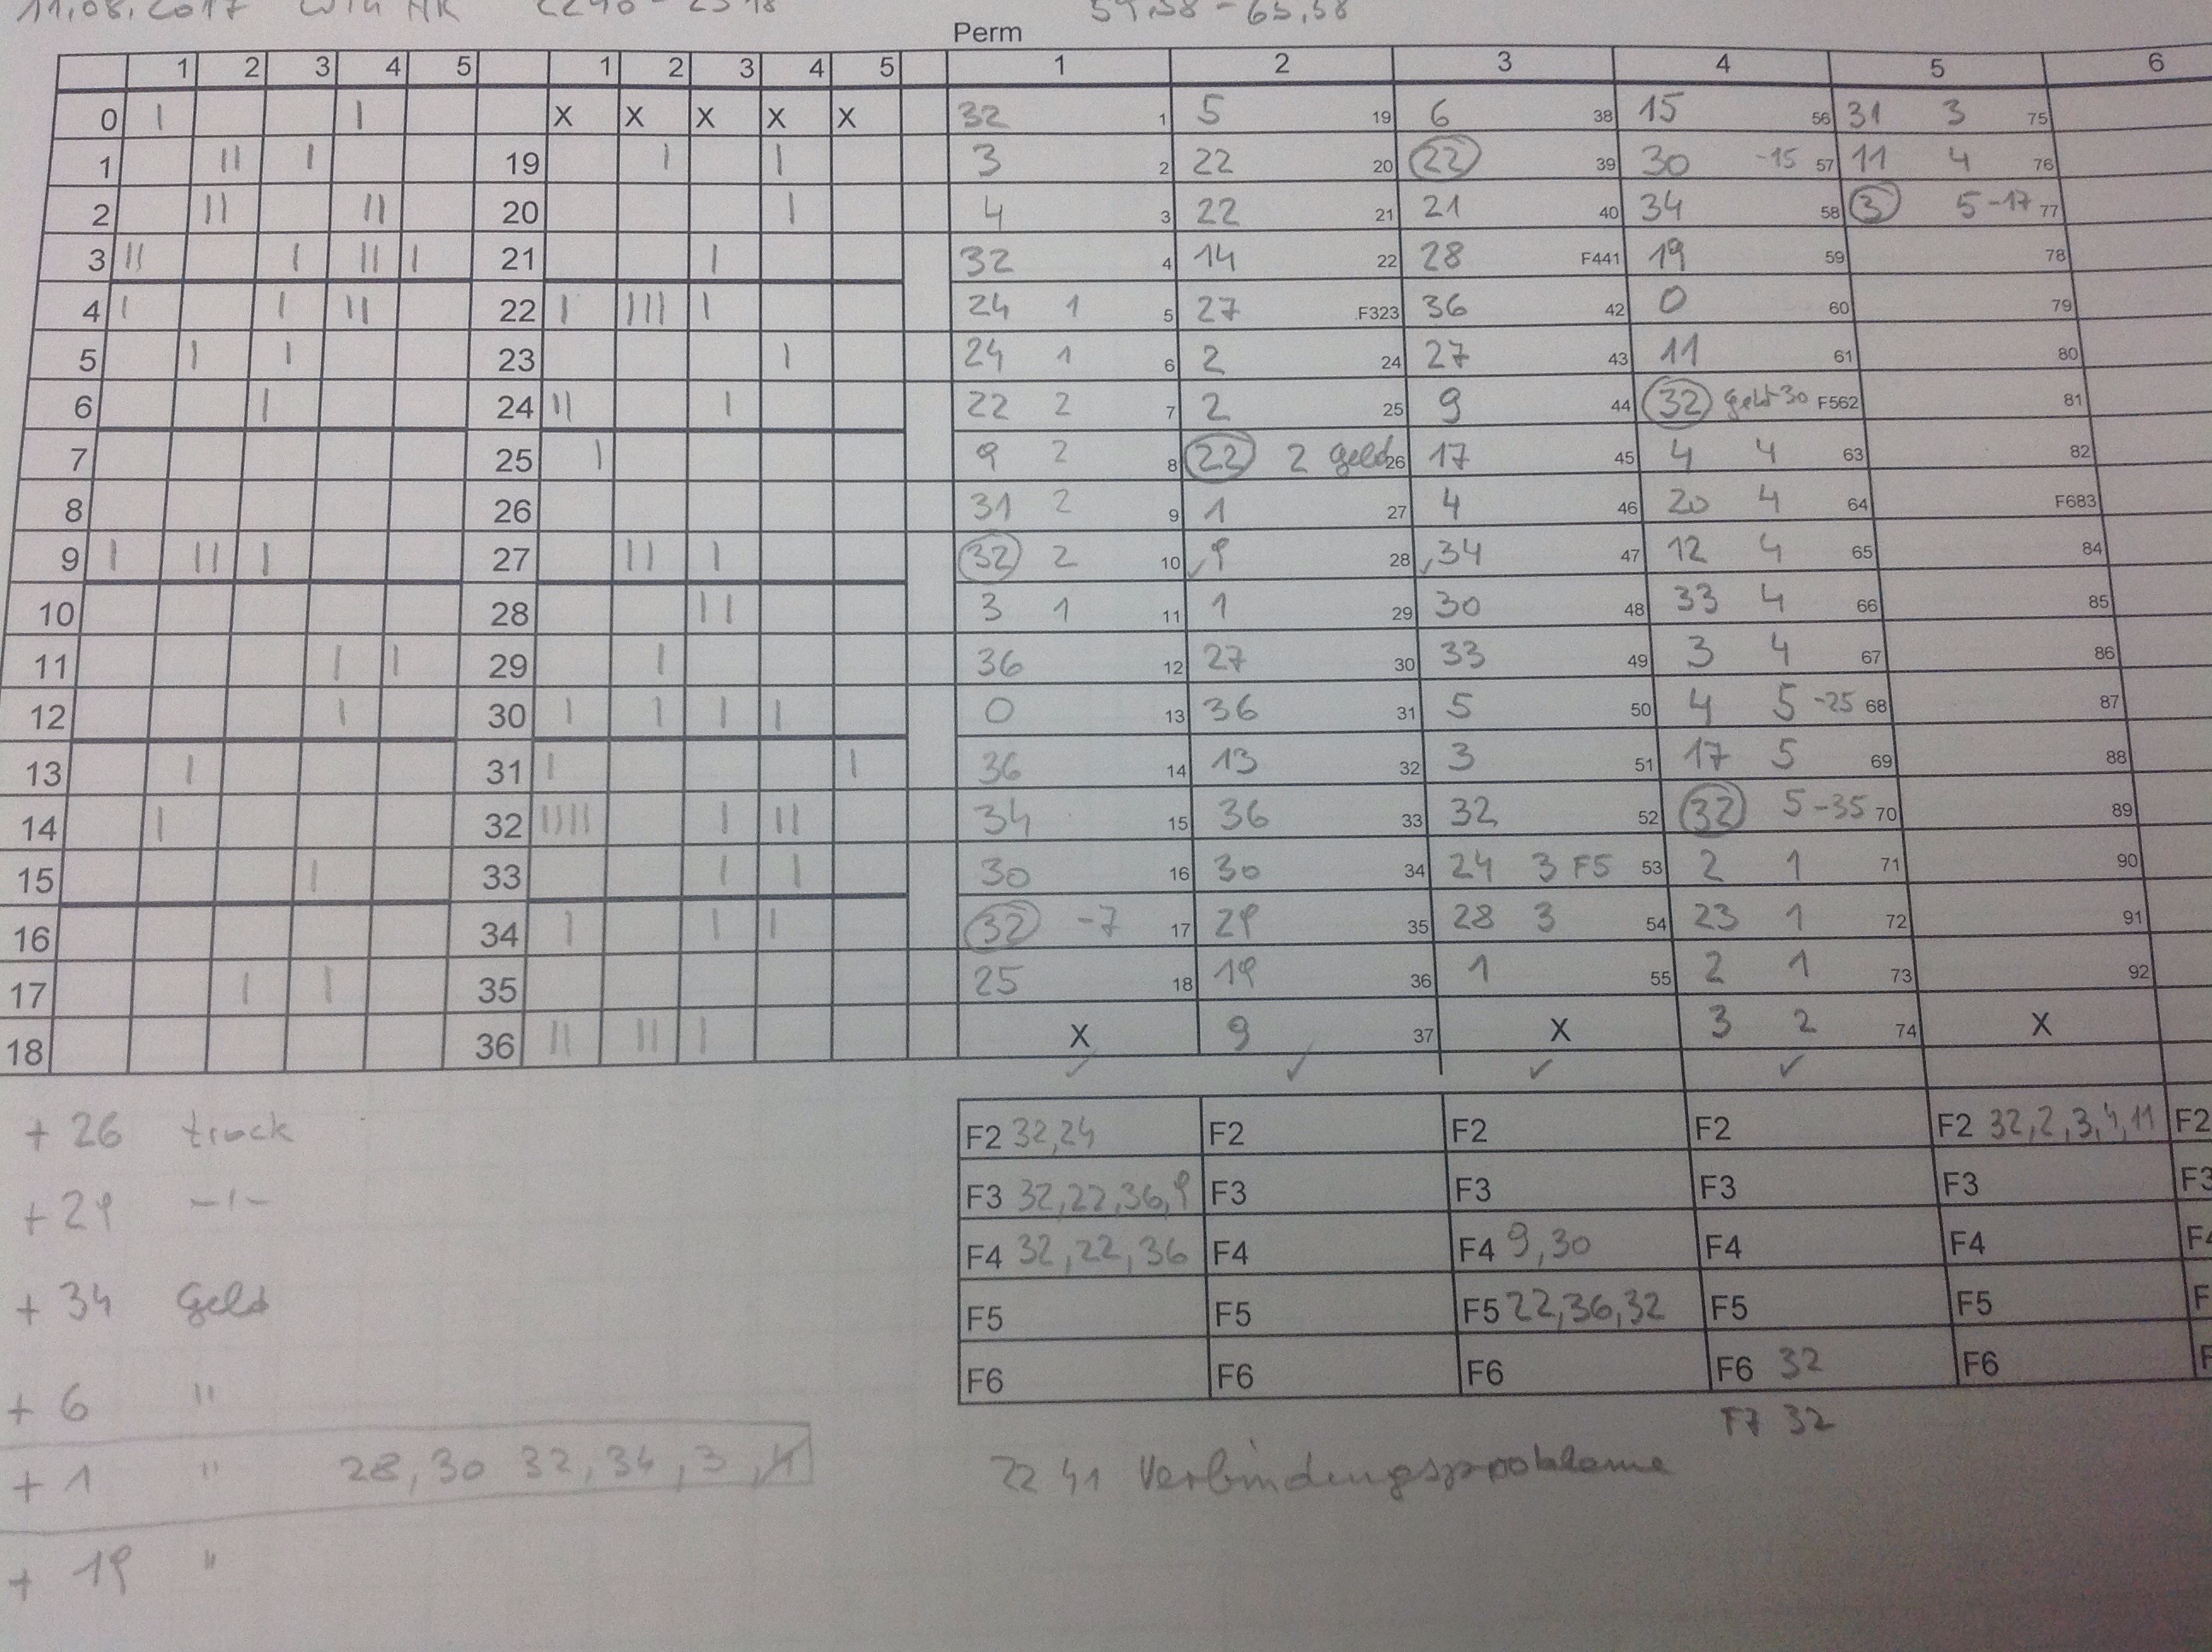 11.08.2017 2240 - 2318 59,58 - 65,58
Perm
1 2 3 4 5 1 2 3 4 5 1 2 3 4 5 6
0 | | X X X X X 32 1 5 19 6 38 15 56 31 3 75
1 || | 19 | | 3 2 22 20 22 39 30 -15 57 11 4 76
2 || || 20 | 4 3 22 21 21 40 34 58 3 5 -17 77
3 || | || | 21 | 32 4 14 22 28 F441 19 59 78
4 | | || 22 | ||| | 24 1 5 27 F323 36 42 0 60 79
5 | | 23 | 24 1 6 2 24 27 43 11 61 80
6 | 24 || | 22 2 7 2 25 9 44 32 Geld 30 F562 81
7 25 | 9 2 8 22 2 Geld 26 17 45 4 4 63 82
8 26 31 2 9 1 27 4 46 20 4 64 F683
9 | || | 27 || | 32 2 10 9 28 34 47 12 4 65 84
10 28 || 3 1 11 1 29 30 48 33 4 66 85
11 | | 29 | 36 12 27 30 33 49 3 4 67 86
12 | 30 | | | | 0 13 36 31 5 50 4 5 -25 68 87
13 | 31 | | 36 14 13 32 3 51 17 5 69 88
14 | 32 |||| | || 34 15 36 33 32 52 32 5 -35 70 89
15 | 33 | | 30 16 30 34 24 3 F5 53 2 1 71 90
16 34 | | | 32 -7 17 29 35 28 3 54 23 1 72 91
17 | | 35 25 18 19 36 1 55 2 1 73 92
18 36 || || | X 9 37 X 3 2 74 X
✓ ✓ ✓ ✓
F2 32,24 F2 F2 F2 F2 32,2,3,4,11 F2
F3 32,22,36,9 F3 F3 F3 F3 F3
F4 32,22,36 F4 F4 9,30 F4 F4 F4
F5 F5 F5 22,36,32 F5 F5 F
F6 F6 F6 F6 32 F6 F
F7 32
2241 Verbindungsprobleme
+ 26 track
+ 29 -"-
+ 34 Geld
+ 6 "
+ 1 " 28, 30 32, 34, 3,
+ 19 "